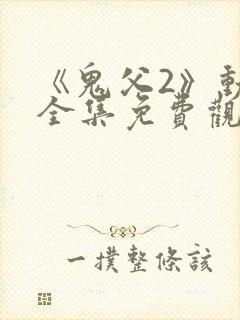 《鬼父2》動
全集免費觀
一撲整條該